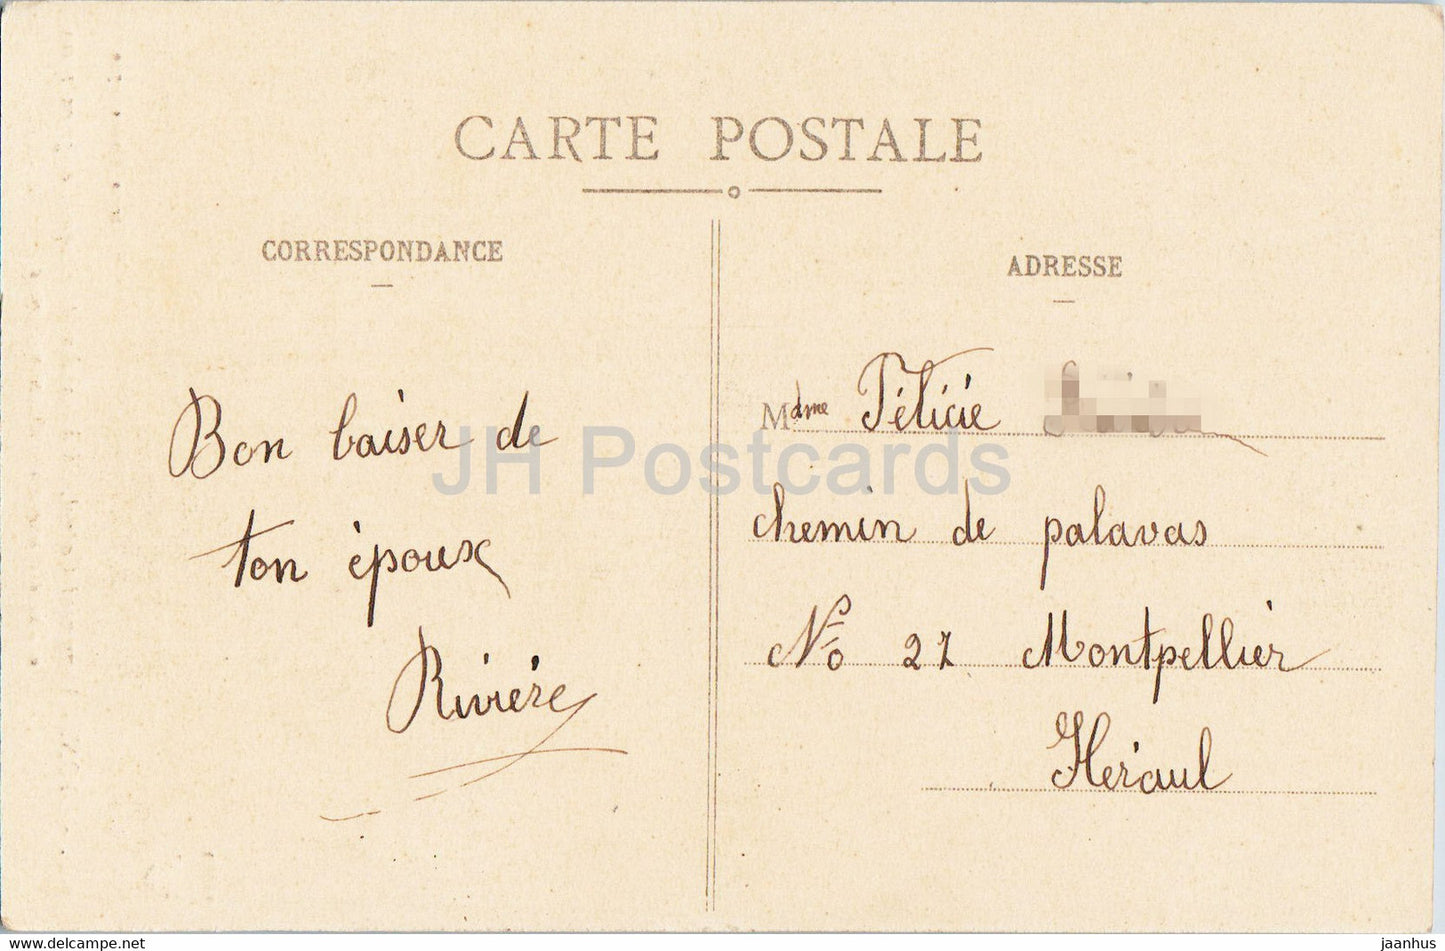 CARTE POSTALE
CORRESPONDANCE
ADRESSE
Bon baiser de
ton époux
Rivière
Mdme Félicie
chemin de palavas
No 27 Montpellier
Héraul
JH Postcards
jaanhus - https://www.delcampe.net